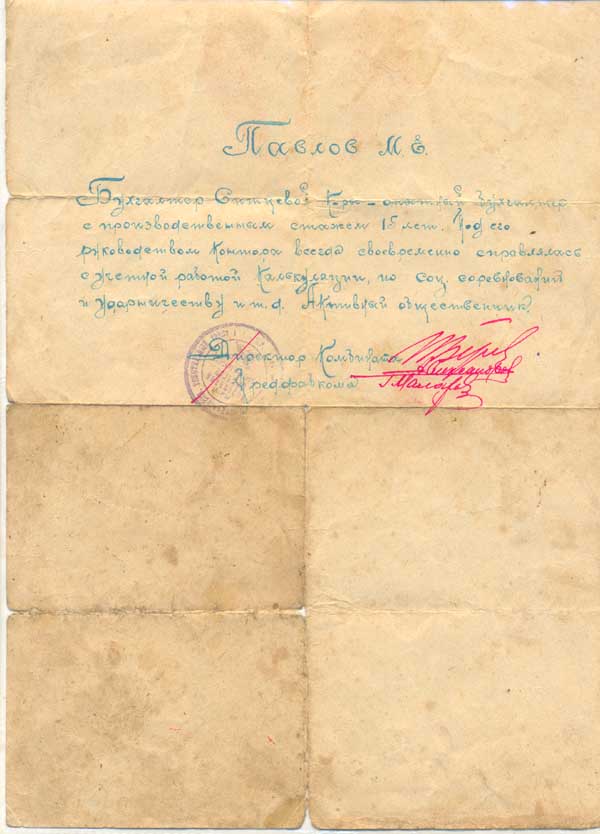 Павлов М. Е.
Бухгалтер Ситцевой Кр - опытный бухгалтер
с производственным стажем 15 лет. Под его
руководством контора всегда своевременно справлялась
с учетной работой Калькуляции, по соц. соревнований
и ударничеству и т. д. Активный общественник.
Директор Комбината
Предфабкома